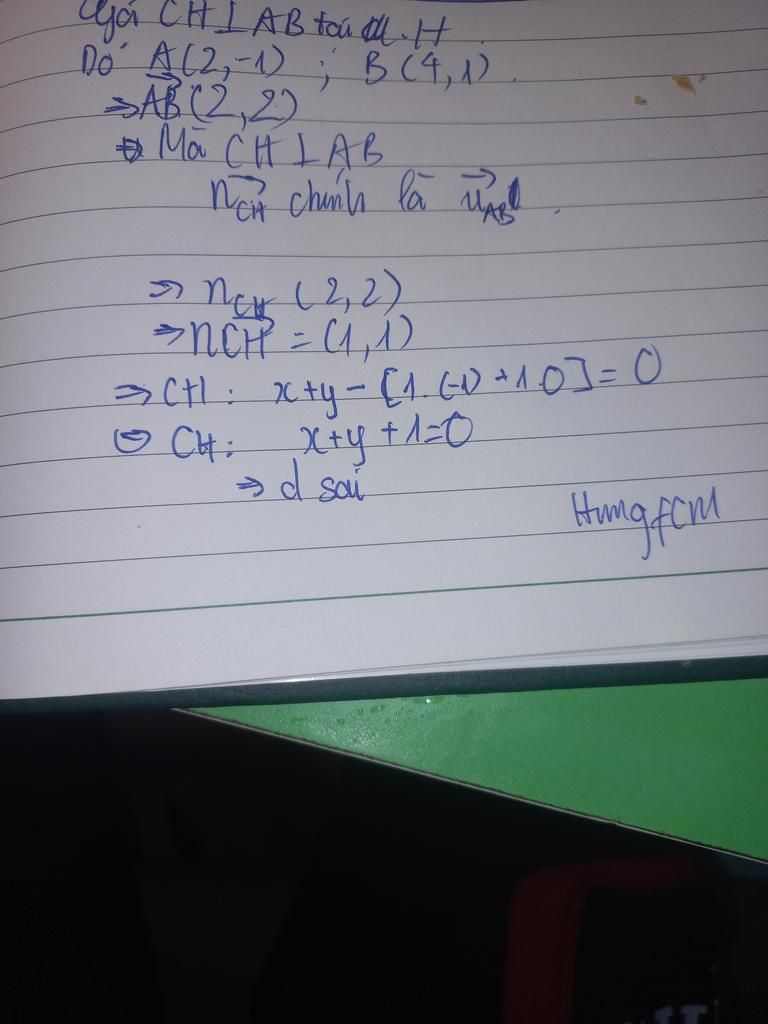 Gọi CH ⊥ AB tại H.
Do A(2,-1) ; B(4,1).
⇒ AB→(2,2)
Mà CH ⊥ AB
n→CH chính là u→AB.
⇒ nCH→ (2,2)
⇒ nCH→ = (1,1)
⇒ CH: x+y-[1.(-1)+1.0]=0
⇔ CH: x+y+1=0
⇒ d sai
HungfCM